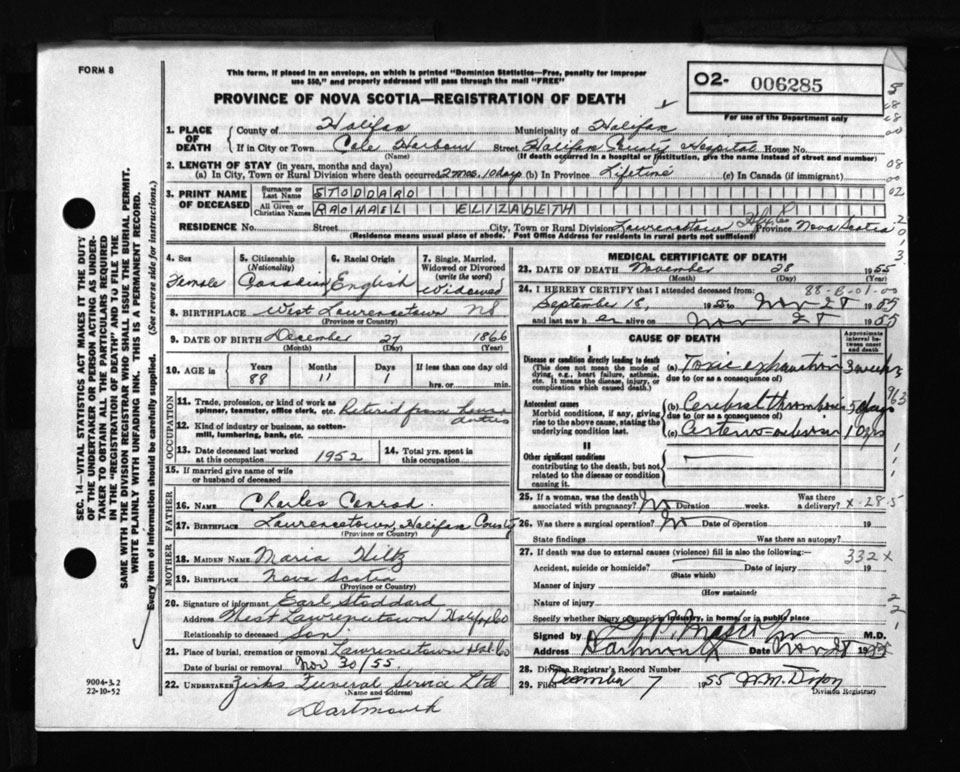 FORM 8
This form, if placed in an envelope, on which is printed "Dominion Statistics—Free, penalty for improper
use $50," and properly addressed will pass through the mail "FREE"
PROVINCE OF NOVA SCOTIA—REGISTRATION OF DEATH
02- 006285
For use of the Department only
1. PLACE OF DEATH
County of Halifax Municipality of Halifax
If in City or Town Cole Harbour Street Halifax County Hospital House No.
(Name) (If death occurred in a hospital or institution, give the name instead of street and number)
2. LENGTH OF STAY (in years, months and days)
(a) In City, Town or Rural Division where death occurred 2 mos. 10 days (b) In Province Lifetime (c) In Canada (if immigrant)
3. PRINT NAME OF DECEASED
Surname or Last Name STODDARD
All Given or Christian Names RACHAEL ELIZABETH
RESIDENCE No. Street City, Town or Rural Division Lawrencetown Hfx Co Province Nova Scotia
(Residence means usual place of abode. Post Office Address for residents in rural parts not sufficient)
4. Sex Female
5. Citizenship (Nationality) Canadian
6. Racial Origin English
7. Single, Married, Widowed or Divorced (write the word) Widowed
8. BIRTHPLACE West Lawrencetown NS
(Province or Country)
9. DATE OF BIRTH December 27 1866
(Month) (Day) (Year)
10. AGE is Years 88 Months 11 Days 1 If less than one day
hrs. or min.
OCCUPATION
11. Trade, profession, or kind of work as
spinner, teamster, office clerk, etc. Retired from house duties
12. Kind of industry or business, as cotton-
mill, lumbering, bank, etc.
13. Date deceased last worked at this occupation 1952
14. Total yrs. spent in this occupation
15. If married give name of wife
or husband of deceased
FATHER
16. NAME Charles Conrod
17. BIRTHPLACE Lawrencetown, Halifax County
(Province or Country)
MOTHER
18. MAIDEN NAME Maria Hiltz
19. BIRTHPLACE Nova Scotia
(Province or Country)
20. Signature of informant Earl Stoddard
Address West Lawrencetown Halifax Co
Relationship to deceased Son
21. Place of burial, cremation or removal Lawrencetown Hal. Co
Date of burial or removal Nov 30/55
22. UNDERTAKER Zinks Funeral Service Ltd
(Name and address)
Dartmouth
MEDICAL CERTIFICATE OF DEATH
23. DATE OF DEATH November 28 1955
(Month) (Day) (Year)
24. I HEREBY CERTIFY that I attended deceased from: 88-B-01-00
September 18, 1955 to Nov 28 1955
and last saw her alive on Nov 28 1955
CAUSE OF DEATH
Approximate interval between onset and death
I
Disease or condition directly leading to death
(This does not mean the mode of dying, e.g., heart failure, asthenia, etc. It means the disease, injury, or complication which caused death.)
(a) Toxic exhaustion 3 weeks
due to (or as a consequence of)
Antecedent causes
Morbid conditions, if any, giving rise to the above cause, stating the underlying condition last.
(b) Cerebral thrombosis 50 days
due to (or as a consequence of)
(c) 10 yrs
II
Other significant conditions
contributing to the death, but not related to the disease or condition causing it.
25. If a woman, was the death associated with pregnancy? No Duration weeks. Was there a delivery? X-28-5
26. Was there a surgical operation? No Date of operation 19
State findings Was there an autopsy?
27. If death was due to external causes (violence) fill in also the following:— 332 X
Accident, suicide or homicide? Date of injury 19
(State which)
Manner of injury
(How sustained)
Nature of injury
Specify whether injury occurred in industry, in home, or in public place
Signed by M.D.
Address Dartmouth Date Nov 28 1955
28. Division Registrar's Record Number
29. Filed December 7 1955 W.M.
Division Registrar
SEC. 14—VITAL STATISTICS ACT MAKES IT THE DUTY
OF THE UNDERTAKER OR PERSON ACTING AS UNDER-
TAKER TO OBTAIN ALL THE PARTICULARS REQUIRED
IN THE "REGISTRATION OF DEATH" AND TO FILE THE
SAME WITH THE DIVISION REGISTRAR WHO SHALL ISSUE THE BURIAL PERMIT.
WRITE PLAINLY WITH UNFADING INK. THIS IS A PERMANENT RECORD.
Every item of Information should be carefully supplied. (See reverse side for instructions.)
9004-3.2
22-10-52